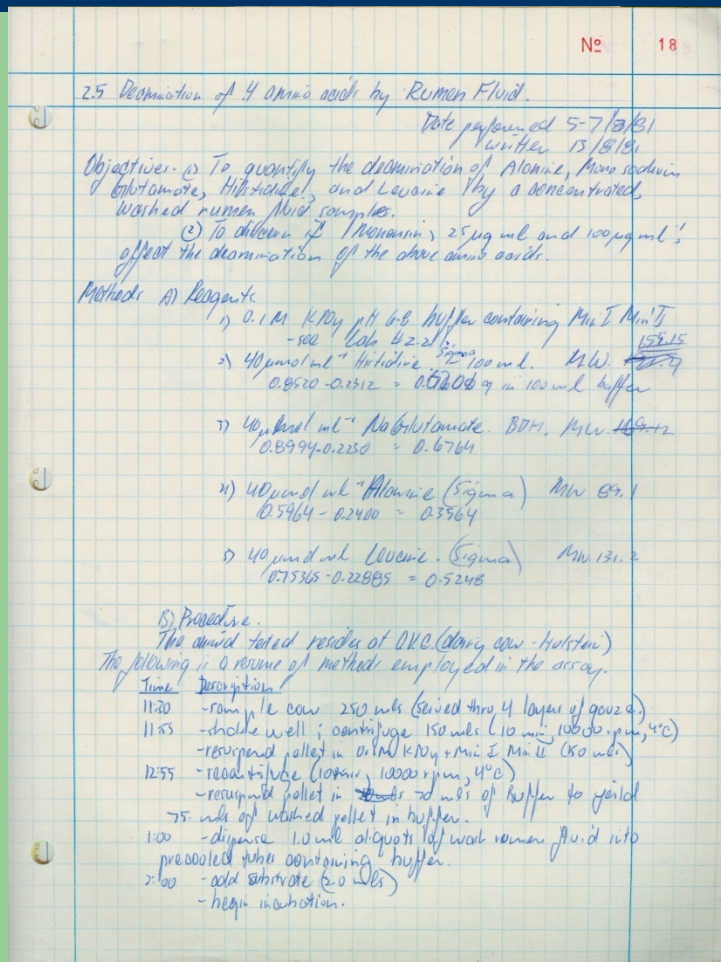 Nº 18
2.5 Deamination of 4 amino acids by Rumen Fluid.
Date performed 5-7/8/81
written 13/8/81
Objectives. ① To quantify the deamination of Alanine, Mono sodium
Glutamate, Histidine, and Leucine by a concentrated,
washed rumen fluid sample.
② To discern if Monensin, 25 µg ml and 100 µg ml⁻¹,
affect the deamination of the above amino acids.
Methods A) Reagents.
1) 0.1 M KPO4 pH 6.8 buffer containing Min I Min II
- see Lab # 2.21.
2) 40 µmol ml⁻¹ Histidine Sigma 100 ml. M.W. 155.15
0.8520 - 0.2312 = g in 100 ml buffer
3) 40 µmol ml⁻¹ NaGlutamate. BDH. MW.
0.8994 - 0.2230 = 0.6764
4) 40 µmol ml⁻¹ Alanine (Sigma) MW 89.1
0.5964 - 0.2400 = 0.3564
5) 40 µmol ml Leucine. (Sigma) MW. 131.2
0.75365 - 0.22885 = 0.5248
B) Procedure.
The animal tested resides at O.V.C. (dairy cow - Holstein)
The following is a resume of methods employed in the assay.
Time Description
11:20 - sample cow 250 mls (seived thru 4 layers of gauze.)
11:55 - shake well; centrifuge 150 mls (10 min, 10000 rpm, 4°C)
- resuspend pellet in 0.1M KPO4 + Min I Min II (150 mls)
12:55 - recentrifuge (10 min, 10000 rpm, 4°C)
- resuspend pellet in 70 mls of buffer to yeild
75. mls of washed pellet in buffer.
1:00 - dispense 1.0 ml aliquots of wash rumen fluid into
precooled tubes containing buffer.
2:00 - add substrate (2.0 mls)
- begin incubation.